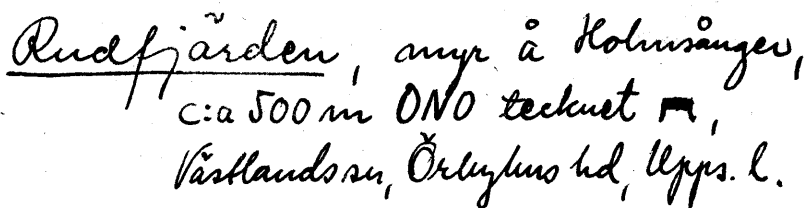 Rudfjärden, myr å Holmsånger,
c:a 500 m ONO tecknet
Västlands sn, Örbyhus hd, Upps. l.